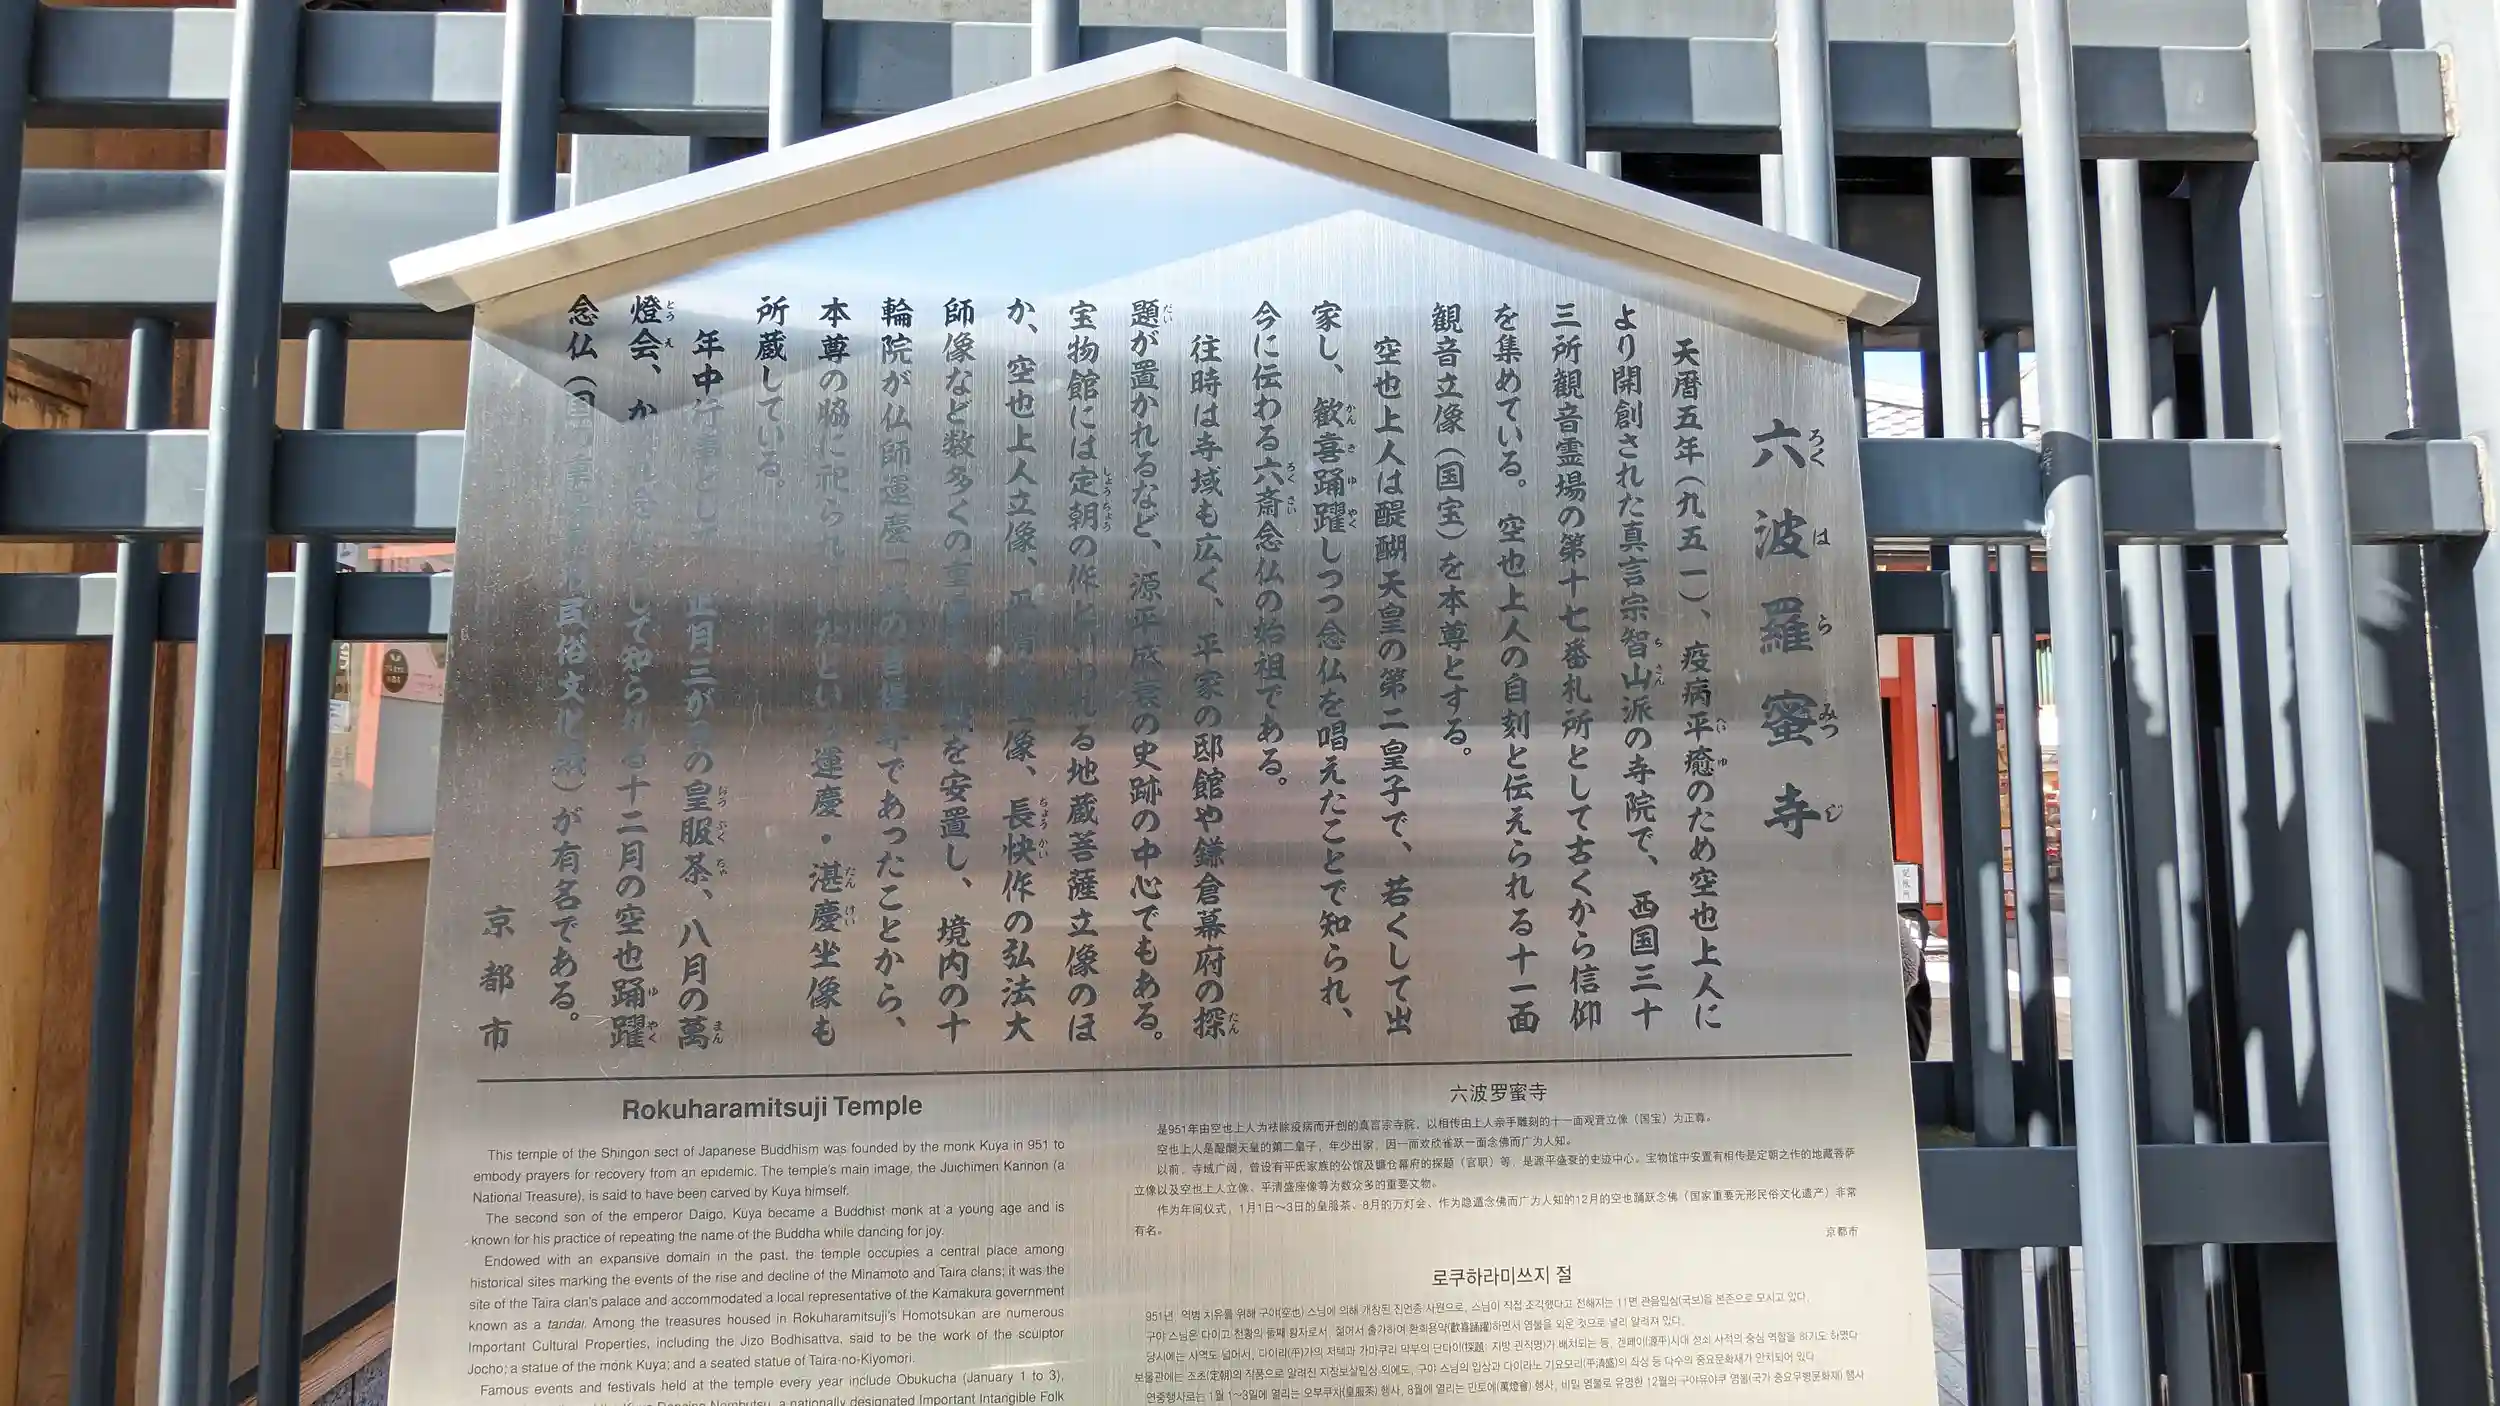 六波羅蜜寺
ろくはらみつじ
天暦五年（九五一）、疫病平癒のため空也上人に
より開創された真言宗智山派の寺院で、西国三十
三所観音霊場の第十七番札所として古くから信仰
を集めている。空也上人の自刻と伝えられる十一面
観音立像（国宝）を本尊とする。
空也上人は醍醐天皇の第二皇子で、若くして出
家し、歓喜踊躍しつつ念仏を唱えたことで知られ、
今に伝わる六斎念仏の始祖である。
往時は寺域も広く、平家の邸館や鎌倉幕府の探
題が置かれるなど、源平盛衰の史跡の中心でもある。
宝物館には定朝の作といわれる地蔵菩薩立像のほ
か、空也上人立像、平清盛坐像、長快作の弘法大
師像など数多くの重を安置し、境内の十
輪院が仏師運慶一族の菩提寺であったことから、
本尊の脇に祀られたという運慶・湛慶坐像も
所蔵している。
年中行事として、正月三が日の皇服茶、八月の萬
燈会、かして知られる十二月の空也踊躍
念仏（国民俗文化財）が有名である。
京都市
Rokuharamitsuji Temple
This temple of the Shingon sect of Japanese Buddhism was founded by the monk Kuya in 951 to
embody prayers for recovery from an epidemic. The temple's main image, the Juichimen Kannon (a
National Treasure), is said to have been carved by Kuya himself.
The second son of the emperor Daigo, Kuya became a Buddhist monk at a young age and is
known for his practice of repeating the name of the Buddha while dancing for joy.
Endowed with an expansive domain in the past, the temple occupies a central place among
historical sites marking the events of the rise and decline of the Minamoto and Taira clans; it was the
site of the Taira clan's palace and accommodated a local representative of the Kamakura government
known as a tandai. Among the treasures housed in Rokuharamitsuji's Homotsukan are numerous
Important Cultural Properties, including the Jizo Bodhisattva, said to be the work of the sculptor
Jocho; a statue of the monk Kuya; and a seated statue of Taira-no-Kiyomori.
Famous events and festivals held at the temple every year include Obukucha (January 1 to 3),
Kuya Dancing Nembutsu, a nationally designated Important Intangible Folk
六波罗蜜寺
是951年由空也上人为祛除疫病而开创的真言宗寺院，以相传由上人亲手雕刻的十一面观音立像（国宝）为正尊。
空也上人是醍醐天皇的第二皇子，年少出家，因一面欢欣雀跃一面念佛而广为人知。
以前，寺域广阔，曾设有平氏家族的公馆及镰仓幕府的探题（官职）等，是源平盛衰的史迹中心。宝物馆中安置有相传是定朝之作的地藏菩萨
立像以及空也上人立像、平清盛座像等为数众多的重要文物。
作为年间仪式，1月1日～3日的皇服茶、8月的万灯会、作为隐遁念佛而广为人知的12月的空也踊跃念佛（国家重要无形民俗文化遗产）非常
有名。
京都市
로쿠하라미쓰지 절
951년 역병 치유를 위해 구야(空也) 스님에 의해 개창된 진언종 사원으로, 스님이 직접 조각했다고 전해지는 11면 관음입상(국보)을 본존으로 모시고 있다.
구야 스님은 다이고 천황의 둘째 황자로서, 젊어서 출가하여 환희용약(歡喜踊躍)하면서 염불을 외운 것으로 널리 알려져 있다.
당시에는 사역도 넓어서, 다이라(平)가의 저택과 가마쿠라 막부의 단다이(探題: 지방 관직명)가 배치되는 등, 겐페이(源平)시대 성쇠 사적의 중심 역할을 하기도 하였다
보물관에는 조초(定朝)의 작품으로 알려진 지장보살입상 외에도, 구야 스님의 입상과 다이라노 기요모리(平清盛)의 좌상 등 다수의 중요문화재가 안치되어 있다
연중행사로는 1월 1～3일에 열리는 오부쿠차(皇服茶) 행사, 8월에 열리는 만토에(萬燈會) 행사, 비밀 염불로 유명한 12월의 구야유야쿠 염불(국가 중요무형문화재) 행사